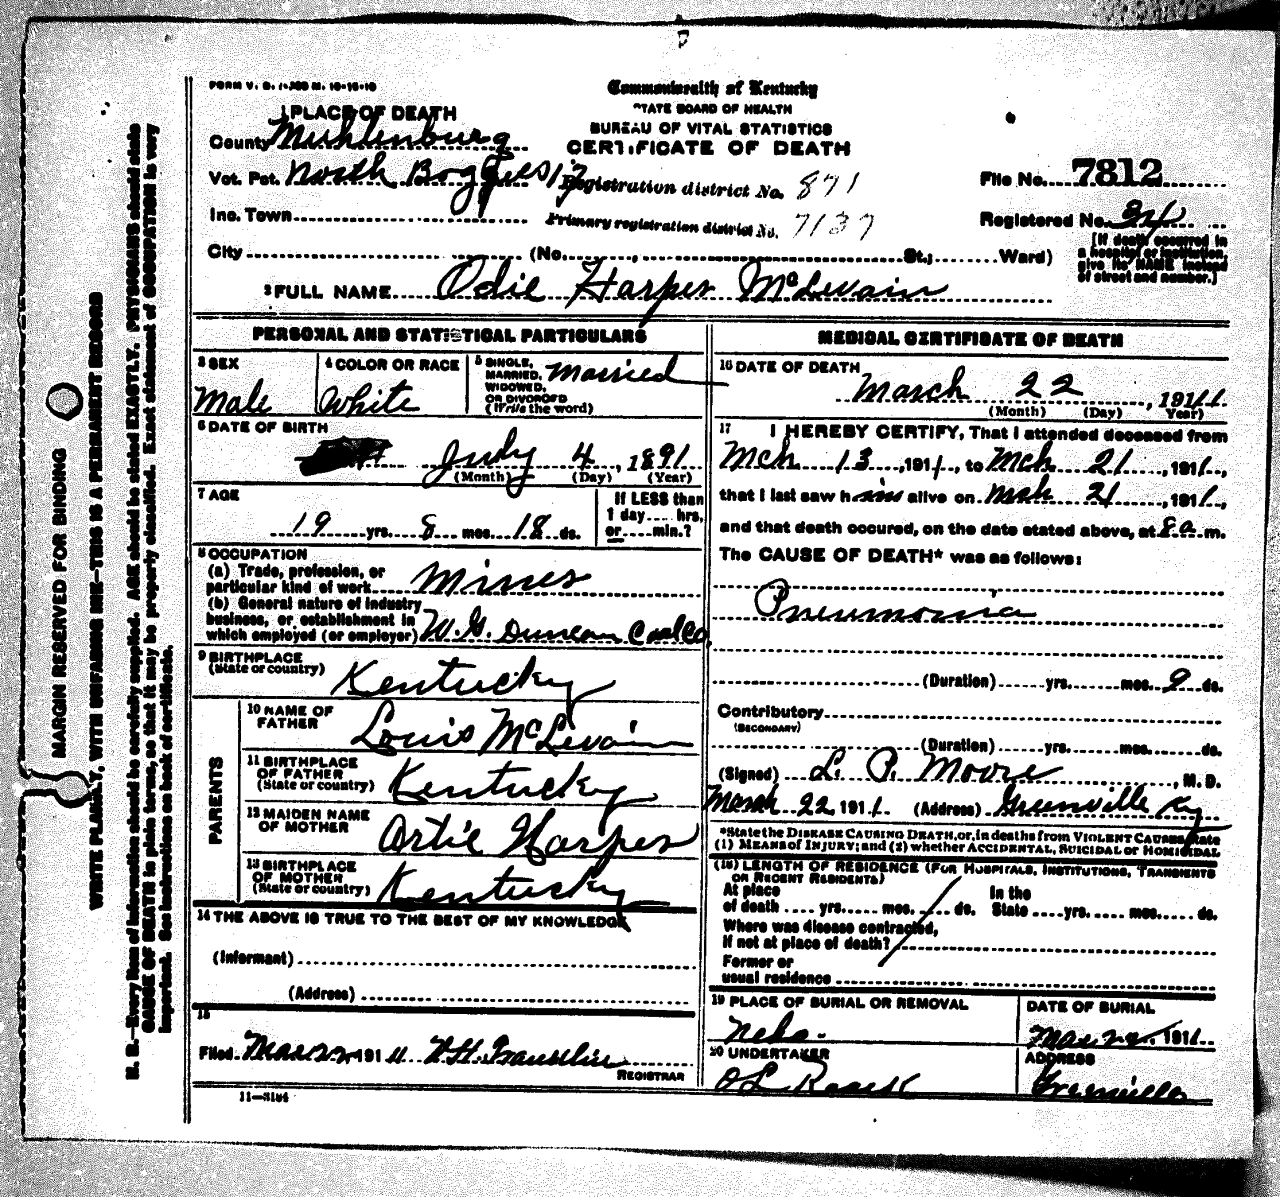 FORM V. S. 1-350 M. 10-10-10
Commonwealth of Kentucky
STATE BOARD OF HEALTH
BUREAU OF VITAL STATISTICS
CERTIFICATE OF DEATH
1 PLACE OF DEATH
County Muhlenburg
Vot. Pct. North Boggess 17
Inc. Town
City (No. , St.; Ward)
Registration district No. 871
Primary registration district No. 7137
File No. 7812
Registered No. 34
[If death occurred in
a hospital or institution,
give its NAME instead
of street and number.]
2 FULL NAME Odie Harper McLevain
PERSONAL AND STATISTICAL PARTICULARS
3 SEX
Male
4 COLOR OR RACE
White
5 SINGLE,
MARRIED,
WIDOWED,
OR DIVORCED
(Write the word)
Married
6 DATE OF BIRTH
July 4, 1891
(Month) (Day) (Year)
7 AGE
19 yrs. 8 mos. 18 ds.
If LESS than
1 day.... hrs,
or....min.?
8 OCCUPATION
(a) Trade, profession, or
particular kind of work Miner
(b) General nature of industry
business, or establishment in
which employed (or employer) W. G. Duncan Coal Co.
9 BIRTHPLACE
(State or country) Kentucky
PARENTS
10 NAME OF
FATHER Louis McLevain
11 BIRTHPLACE
OF FATHER
(State or country) Kentucky
12 MAIDEN NAME
OF MOTHER Artie Harper
13 BIRTHPLACE
OF MOTHER
(State or country) Kentucky
14 THE ABOVE IS TRUE TO THE BEST OF MY KNOWLEDGE
(Informant)
(Address)
15
Filed Mar 22 1911
REGISTRAR
11-3184
MEDICAL CERTIFICATE OF DEATH
16 DATE OF DEATH
March 22, 1911
(Month) (Day) (Year)
17 I HEREBY CERTIFY, That I attended deceased from
Mch 13, 1911, to Mch 21, 1911,
that I last saw him alive on Mch 21, 1911,
and that death occured, on the date stated above, at 8 a m.
The CAUSE OF DEATH* was as follows:
Pneumonia
(Duration) yrs. mos. 9 ds.
Contributory
(SECONDARY)
(Duration) yrs. mos. ds.
(Signed) L. P. Moore, M. D.
March 22 1911 (Address) Greenville Ky
*State the DISEASE CAUSING DEATH, or, in deaths from VIOLENT CAUSES, state
(1) MEANS OF INJURY; and (2) whether ACCIDENTAL, SUICIDAL or HOMICIDAL
(18) LENGTH OF RESIDENCE (FOR HOSPITALS, INSTITUTIONS, TRANSIENTS
OR RECENT RESIDENTS)
At place
of death .... yrs. mos. ds.
In the
State yrs. mos. ds.
Where was disease contracted,
if not at place of death?
Former or
usual residence
19 PLACE OF BURIAL OR REMOVAL
Nebo.
DATE OF BURIAL
Mar 22, 1911
20 UNDERTAKER
O L Roark
ADDRESS
Greenville
MARGIN RESERVED FOR BINDING
WRITE PLAINLY, WITH UNFADING INK—THIS IS A PERMANENT RECORD
N. B.—Every item of information should be carefully supplied. AGE should be stated EXACTLY. PHYSICIANS should state
CAUSE OF DEATH in plain terms, so that it may be properly classified. Exact statement of OCCUPATION is very
important. See instructions on back of certificate.